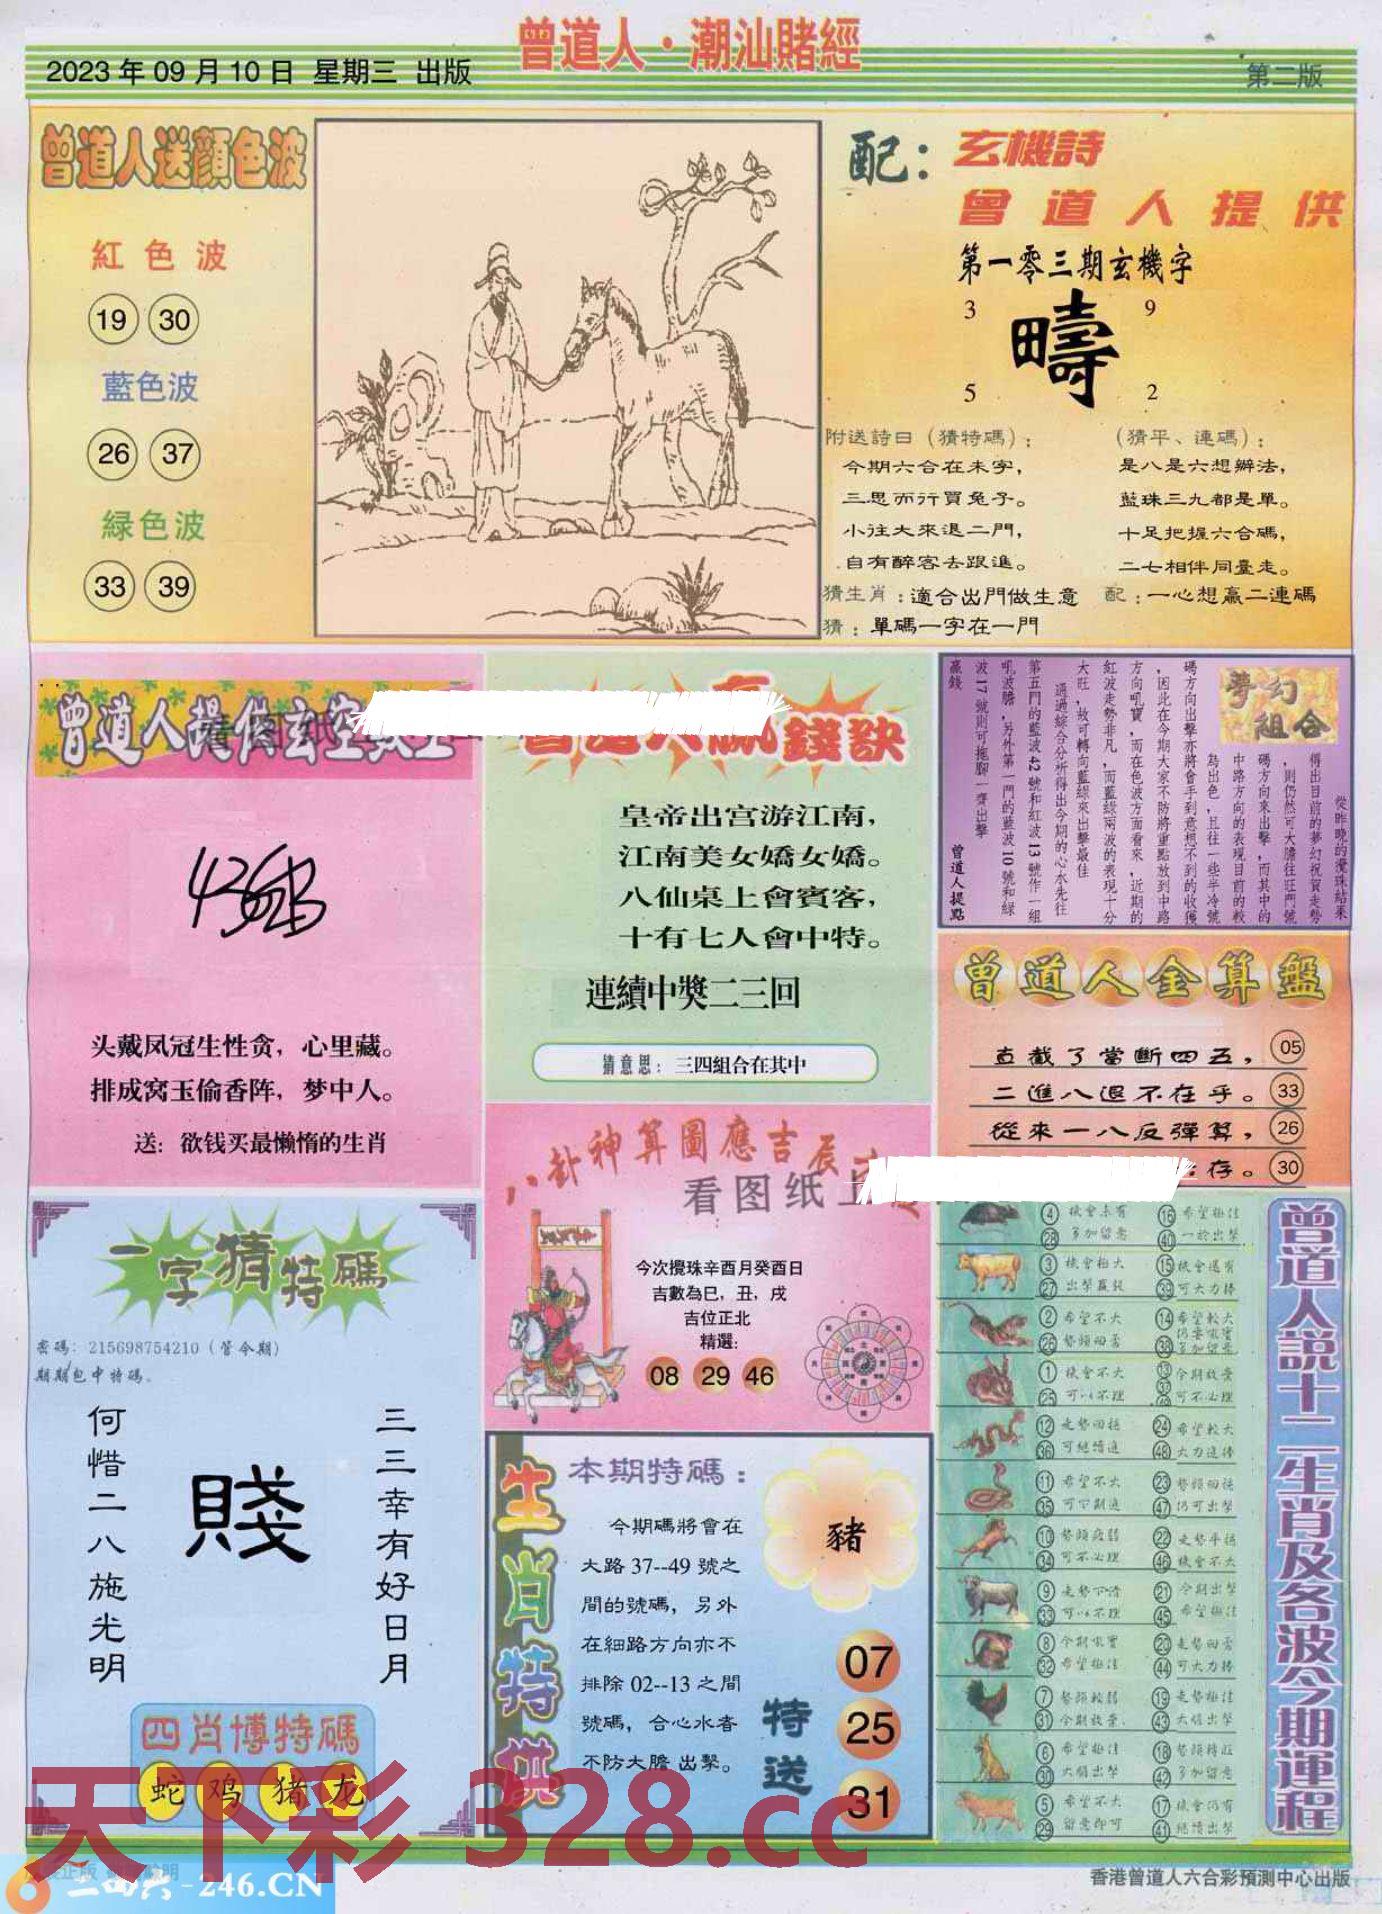 曾道人·潮汕賭經
2023 年 09 月 10 日 星期三 出版
第二版
曾道人送顔色波
紅色波
19 30
藍色波
26 37
緑色波
33 39
配：玄機詩
曾道人提供
第一零三期玄機字
3 9
疇
5 2
附送詩日（猜特碼）：
今期六合在未字，
三思而行買兔子。
小往大來退二門，
自有醉客去跟進。
猜生肖：適合出門做生意
猜：單碼一字在一門
（猜平、連碼）：
是八是六想辦法，
藍珠三九都是單。
十足把握六合碼，
二七相伴同臺走。
配：一心想贏二連碼
曾道人提供玄空
头戴凤冠生性贪，心里藏。
排成窝玉偷香阵，梦中人。
送：欲钱买最懒惰的生肖
錢訣
皇帝出宫游江南，
江南美女嬌女嬌。
八仙桌上會賓客，
十有七人會中特。
連續中獎二三回
猜意思：三四組合在其中
夢幻組合
從昨晚的攪珠結果
得出目前的夢幻祝賀走勢
，則仍然可大膽往旺門號
碼方向來出擊，而其中的
中路方向的表現目前的較
為出色，且往一些半冷號
碼方向出擊亦將會手到意想不到的收獲
，因此在今期大家不防將重點放到中路
方向吼寶，而在色波方面看來，近期的
紅波走勢非凡，而藍綠兩波的表現十分
大旺，故可轉向藍綠來出擊最佳
通過綜合分析得出今期的心水先往
第五門的藍波 42 號和紅波 13 號作一組
吼波膽，另外第一門的藍波 10 號和綠
波 17 號則可拖腳一齊出擊
贏錢
曾道人提點
曾道人金算盤
直截了當斷四五， 05
二進八退不在乎。 33
從來一八反彈算， 26
存。 30
八卦神算圖應吉辰
看图纸
今次攪珠辛酉月癸酉日
吉數為巳，丑，戌
吉位正北
精選：
08 29 46
一字猜特碼
密碼：215698754210（管今期）
期期包中特碼。
三三幸有好日月
賤
何惜二八施光明
四肖博特碼
蛇 鸡 猪 龙
生肖特供
本期特碼：
今期碼將會在
大路 37--49 號之
間的號碼，另外
在細路方向亦不
排除 02--13 之間
號碼，合心水者
不防大膽出擊。
豬
特送
07
25
31
曾道人説十二生肖及各波今期運程
4 機會未有 16 希望極佳
28 多加留意 40 一於出擊
3 機會極大 15 機會還有
27 出擊贏錢 39 可大力捧
2 希望不大 14 希望較大
26 勢頭凶套 38
1 機會不大 13 今期放棄
25 可以不理 可不必理
12 走勢回穩 24 希望較大
36 可繼續追 48 大力追捧
11 希望不大 23 勢頭回穩
35 47 仍可出擊
10 勢頭疲弱 22 走勢平穩
34 可不必理 46 機會不大
9 走勢下滑 21 今期出擊
33 可以不理 45 希望極佳
8 今期吼寶 20
32 希望極佳 44 可大力捧
7 勢頭較弱 19 走勢極佳
31 今期放棄 43 大膽出擊
6 希望極佳 18 勢頭轉旺
30 大膽出擊 42 多加留意
5 希望不大 17 機會仍有
29 留意即可 41 繼續出擊
天下彩 328.cc
二四六-246.CN
香港曾道人六合彩預測中心出版